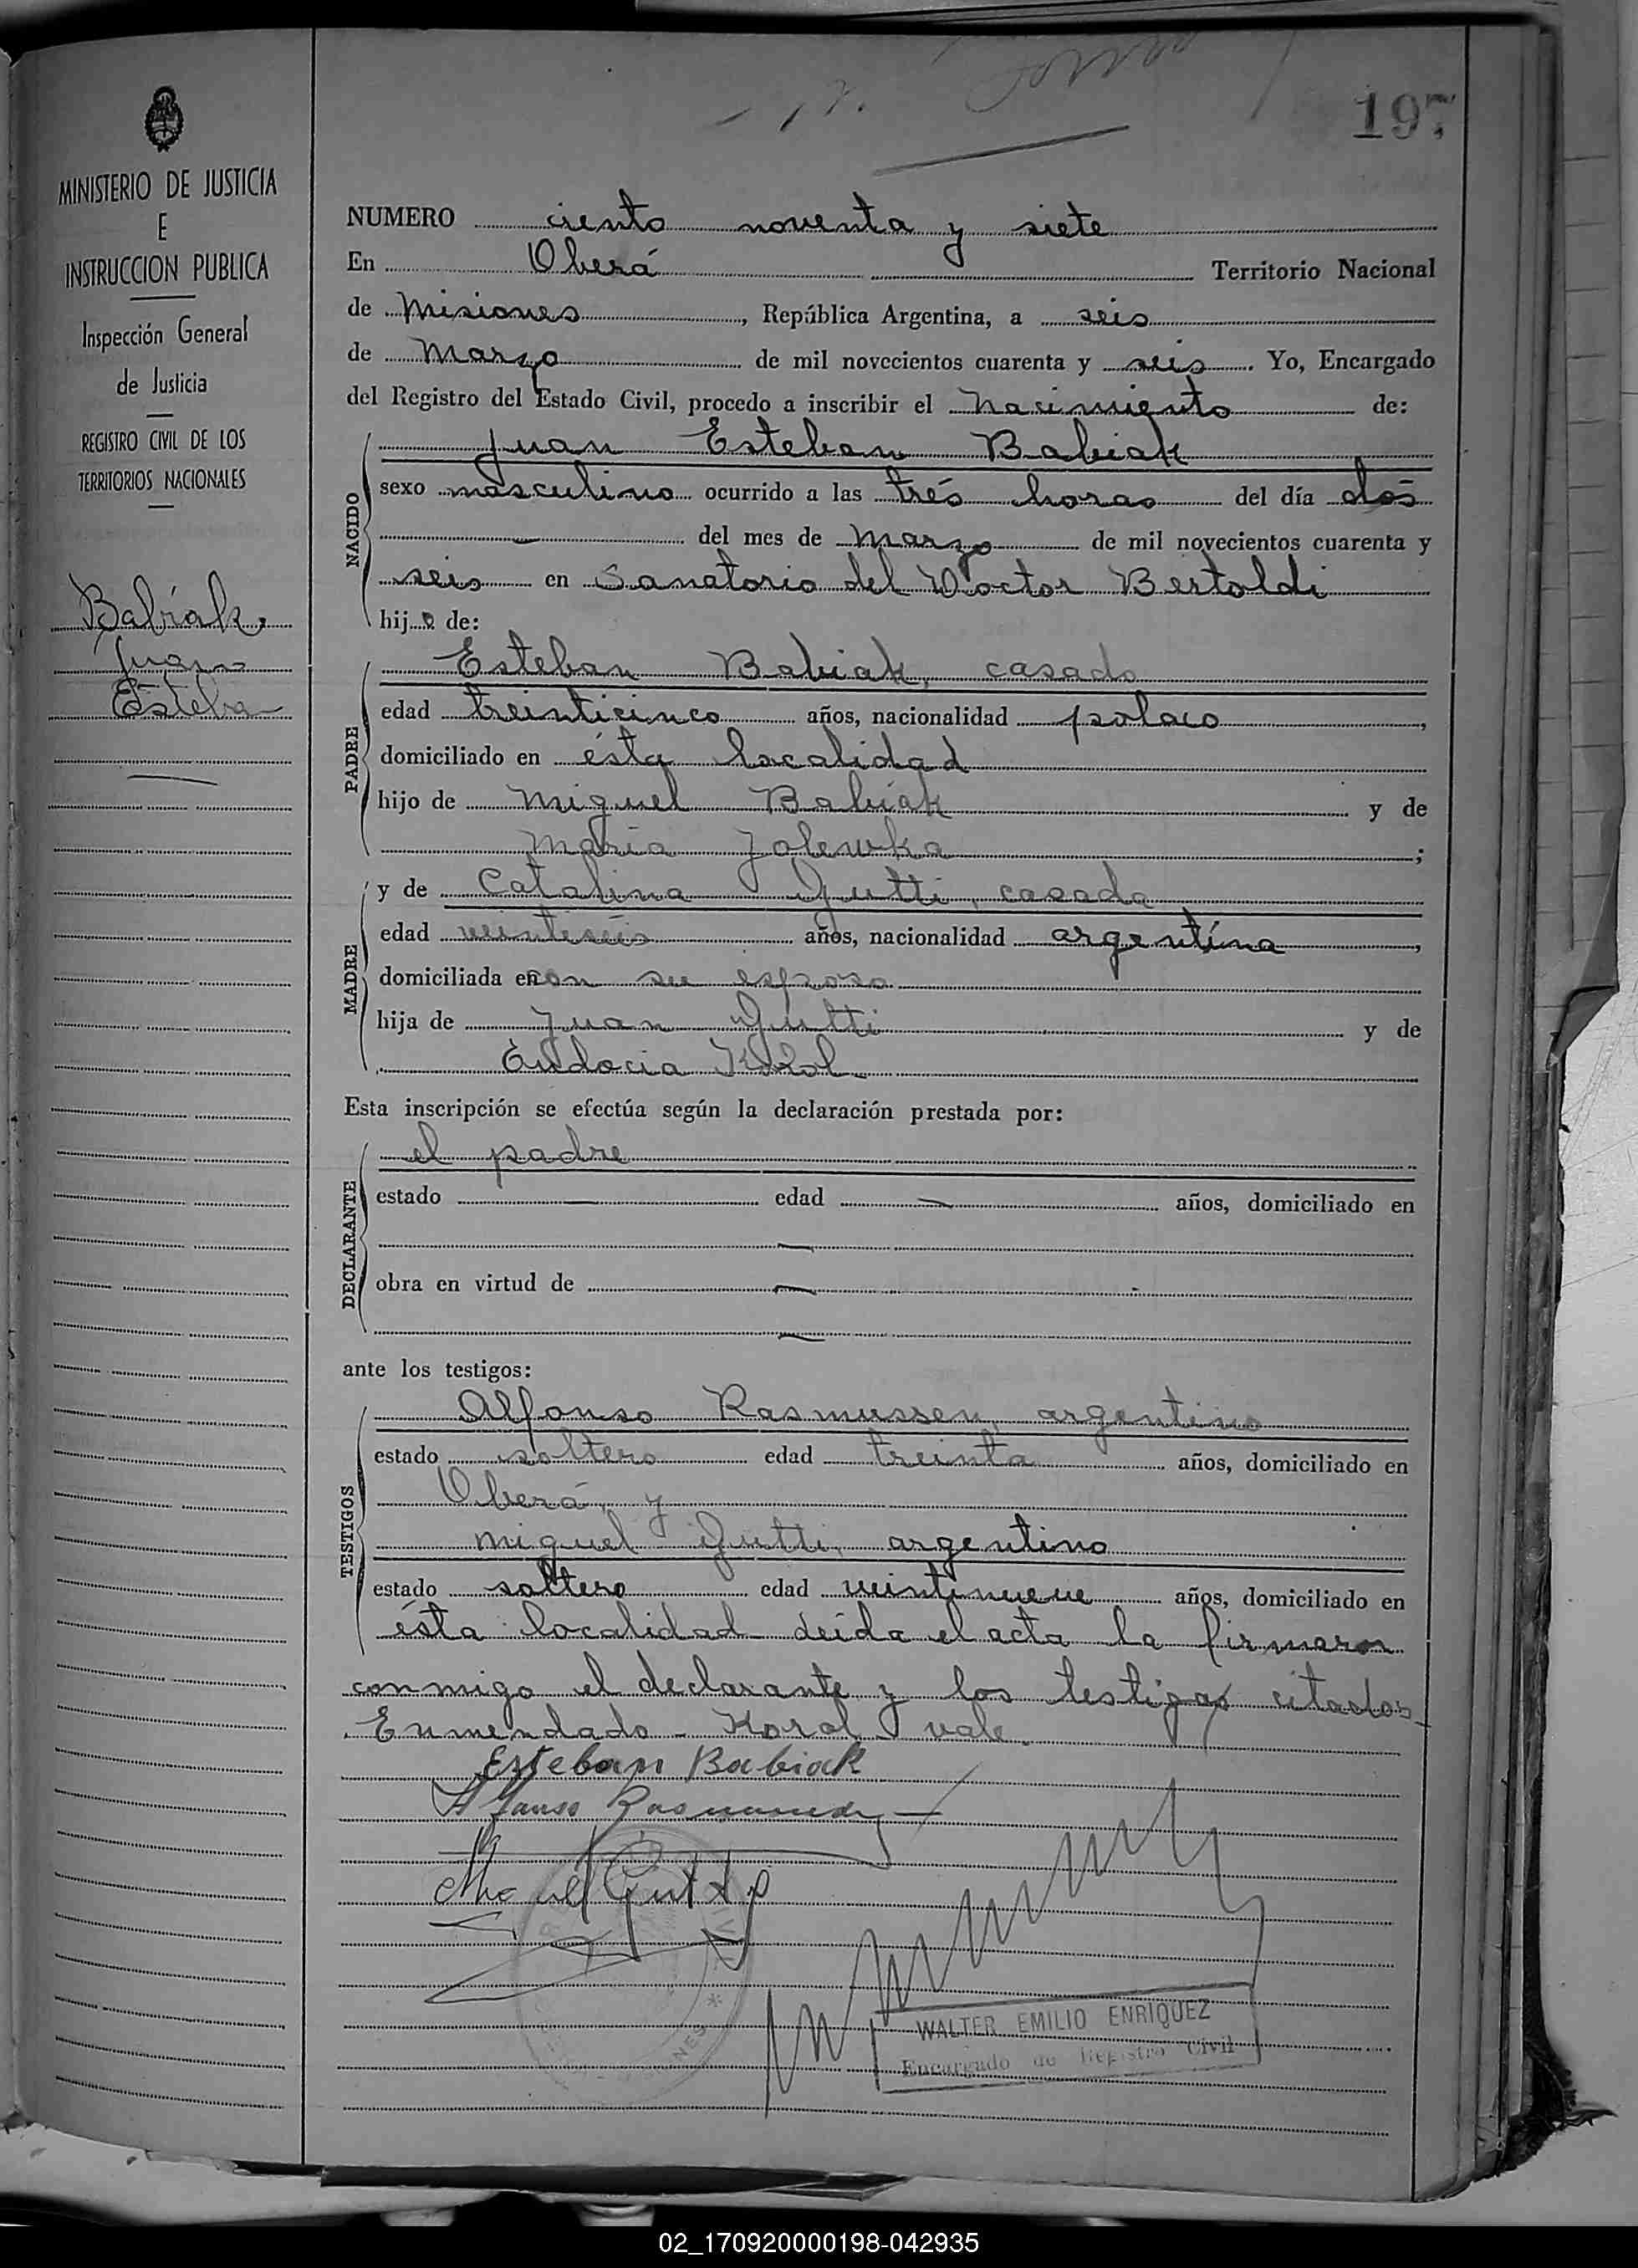 197
MINISTERIO DE JUSTICIA
E
INSTRUCCION PUBLICA
Inspección General
de Justicia
REGISTRO CIVIL DE LOS
TERRITORIOS NACIONALES
Babiak,
Juan
Esteba
NUMERO ciento noventa y siete
En Oberá Territorio Nacional
de Misiones, República Argentina, a seis
de Marzo de mil novecientos cuarenta y seis. Yo, Encargado
del Registro del Estado Civil, procedo a inscribir el Nacimiento de:
NACIDO
Juan Esteban Babiak
sexo masculino ocurrido a las trés horas del día dos
del mes de Marzo de mil novecientos cuarenta y
seis en Sanatorio del Doctor Bertoldi
hijo de:
PADRE
Esteban Babiak, casado
edad treinticinco años, nacionalidad polaco,
domiciliado en ésta localidad
hijo de Miguel Babiak y de
Maria Jolewka;
MADRE
y de Catalina Gutti, casada
edad veintiseis años, nacionalidad argentina,
domiciliada en con su esposo
hija de Juan Gutti y de
Eudocia Korol
Esta inscripción se efectúa según la declaración prestada por:
DECLARANTE
el padre
estado — edad — años, domiciliado en
—
obra en virtud de —
—
ante los testigos:
TESTIGOS
Alfonso Rasmussen, argentino
estado soltero edad treinta años, domiciliado en
Oberá, y
Miguel Gutti, argentino
estado soltero edad veintinueve años, domiciliado en
ésta localidad leída el acta la firmaron
conmigo el declarante y los testigos citados-
Enmendado - Korol vale.
Esteban Babiak
Alfonso Rasmussen
Miguel Gutti
WALTER EMILIO ENRIQUEZ
Encargado de Registro Civil
02_170920000198-042935